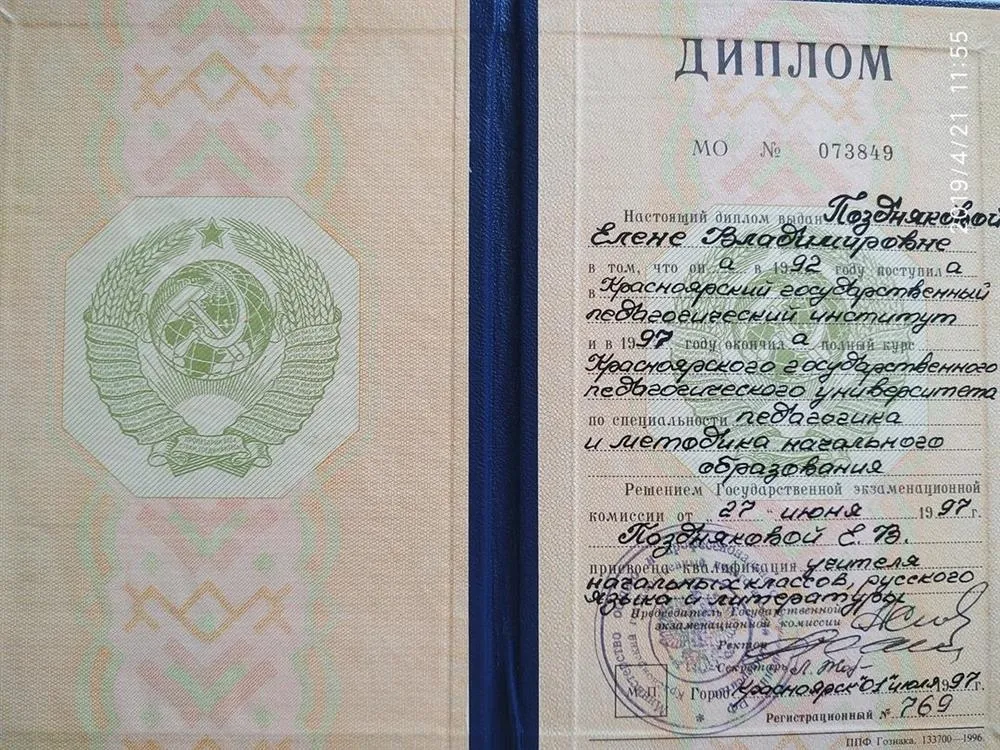 ДИПЛОМ
МО № 073849
Настоящий диплом выдан Поздняковой
Елене Владимировне
в том, что он а в 1992 году поступил а
в Красноярский государственный
педагогический институт
и в 1997 году окончил а полный курс
Красноярского государственного
педагогического университета
по специальности педагогика
и методика начального
образования
Решением Государственной экзаменационной
комиссии от „ 27 “ июня 1997 г.
Поздняковой Е. В.
присвоена квалификация учителя
начальных классов, русского
языка и литературы
Председатель Государственной
экзаменационной комиссии
Ректор
Секретарь
М.П. Город Красноярск "01" июля 1997 г.
Регистрационный № 769
ППФ Гознака. 133700—1996.
2019/4/21 11:55